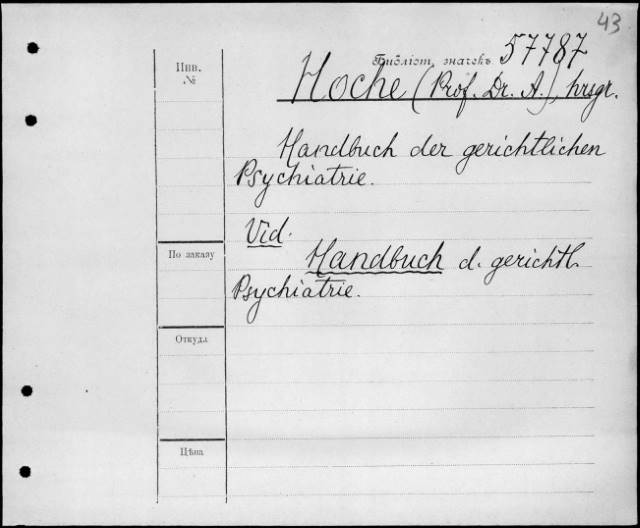 43
Инв.
№
Библіот. значекъ 57787
Hoche (Prof. Dr. A.), hrsgr.
Handbuch der gerichtlichen
Psychiatrie.
Vid.
Handbuch d. gerichtl.
Psychiatrie.
По заказу
Откуда
Цѣна